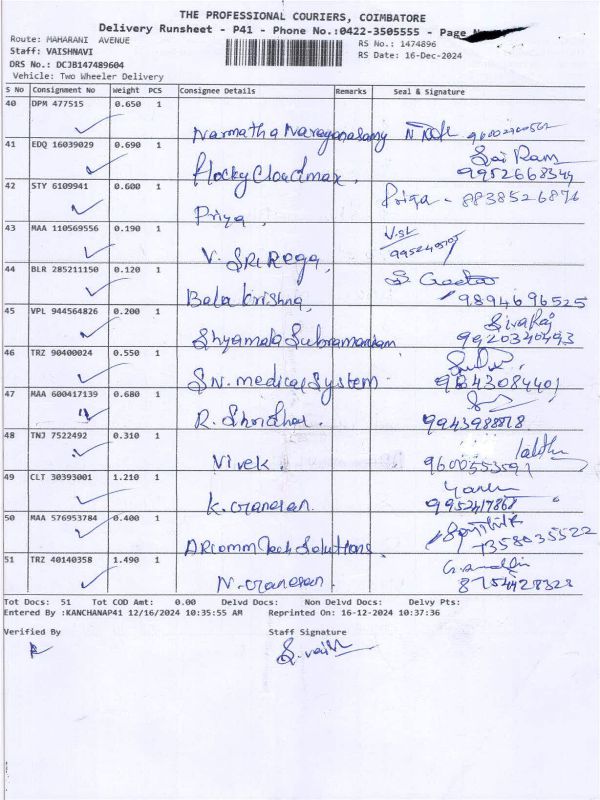 THE PROFESSIONAL COURIERS, COIMBATORE
Delivery Runsheet - P41 - Phone No.:0422-3505555 - Page
Route: MAHARANI AVENUE
RS No.: 1474896
Staff: VAISHNAVI
RS Date: 16-Dec-2024
DRS No.: DCJB147489604
Vehicle: Two Wheeler Delivery
S No Consignment No Weight PCS Consignee Details Remarks Seal & Signature
40 DPM 477515 0.650 1
Narmatha Narayanasamy
41 EDQ 16039029 0.690 1
Sai Ram
Flocky Cloudmax. 9952668344
42 STY 6109941 0.600 1
Priya - 8838526871
Priya.
43 MAA 110569556 0.190 1
V. SRI ROGA,
44 BLR 285211150 0.120 1
Bala Krishna, 9894696525
45 VPL 944564826 0.200 1
Sivaraj
Shyamala Subramaniam. 9920340493
46 TRZ 90400024 0.550 1
SN. medical System 9843084401
47 MAA 600417139 0.680 1
R. Shridhar.
48 TNJ 7522492 0.310 1
Lalitha
Vivek. 9600553591
49 CLT 30393001 1.210 1
K. Ganesan. 9952417868
50 MAA 576953784 0.400 1
ARcomm Tech Solutions. 7358035522
51 TRZ 40140358 1.490 1
N. Ganesan. 8754428328
Tot Docs: 51 Tot COD Amt: 0.00 Delvd Docs: Non Delvd Docs: Delvy Pts:
Entered By :KANCHANAP41 12/16/2024 10:35:55 AM Reprinted On: 16-12-2024 10:37:36
Verified By Staff Signature